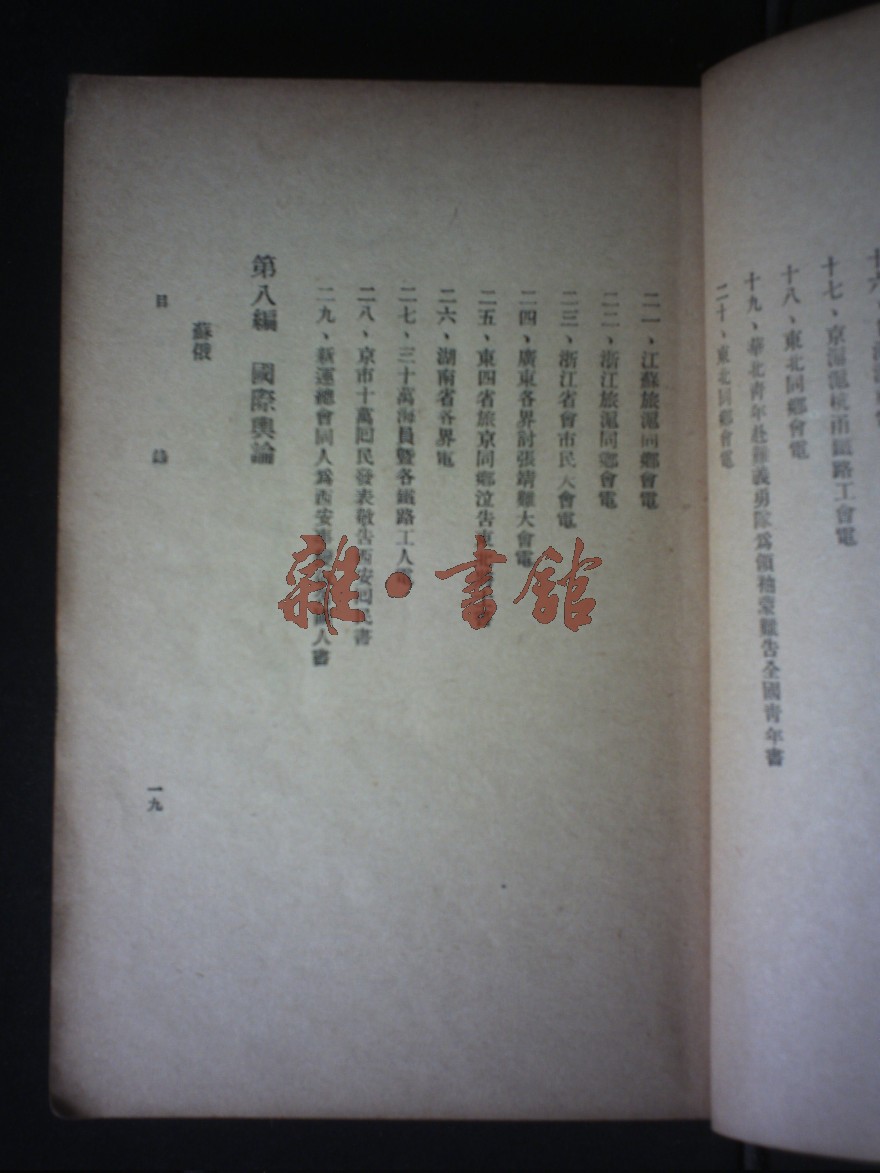 十七、京滬滬杭甬鐵路工會電
十八、東北同鄉會電
十九、華北青年赴難義勇隊為領袖蒙難告全國青年書
二十、東北同鄉會電
二一、江蘇旅滬同鄉會電
二二、浙江旅滬同鄉會電
二三、浙江省會市民大會電
二四、廣東各界討張靖難大會電
二五、東四省旅京同鄉泣告東北
二六、湖南省各界電
二七、三十萬海員暨各鐵路工人電
二八、京市十萬回民發表敬告西安回民書
二九、新運總會同人為西安事變告國人書
第八編　國際輿論
蘇俄
目　錄
一九
雜·書館